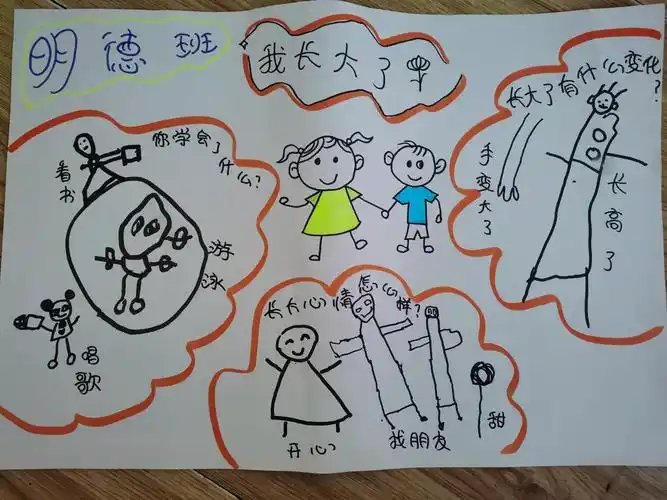 明德班
我长大了
你学会了
什么?
看书
游泳
唱歌
长大了有什么变化?
手变大了
长高了
长大心情怎么样?
开心
我朋友
甜